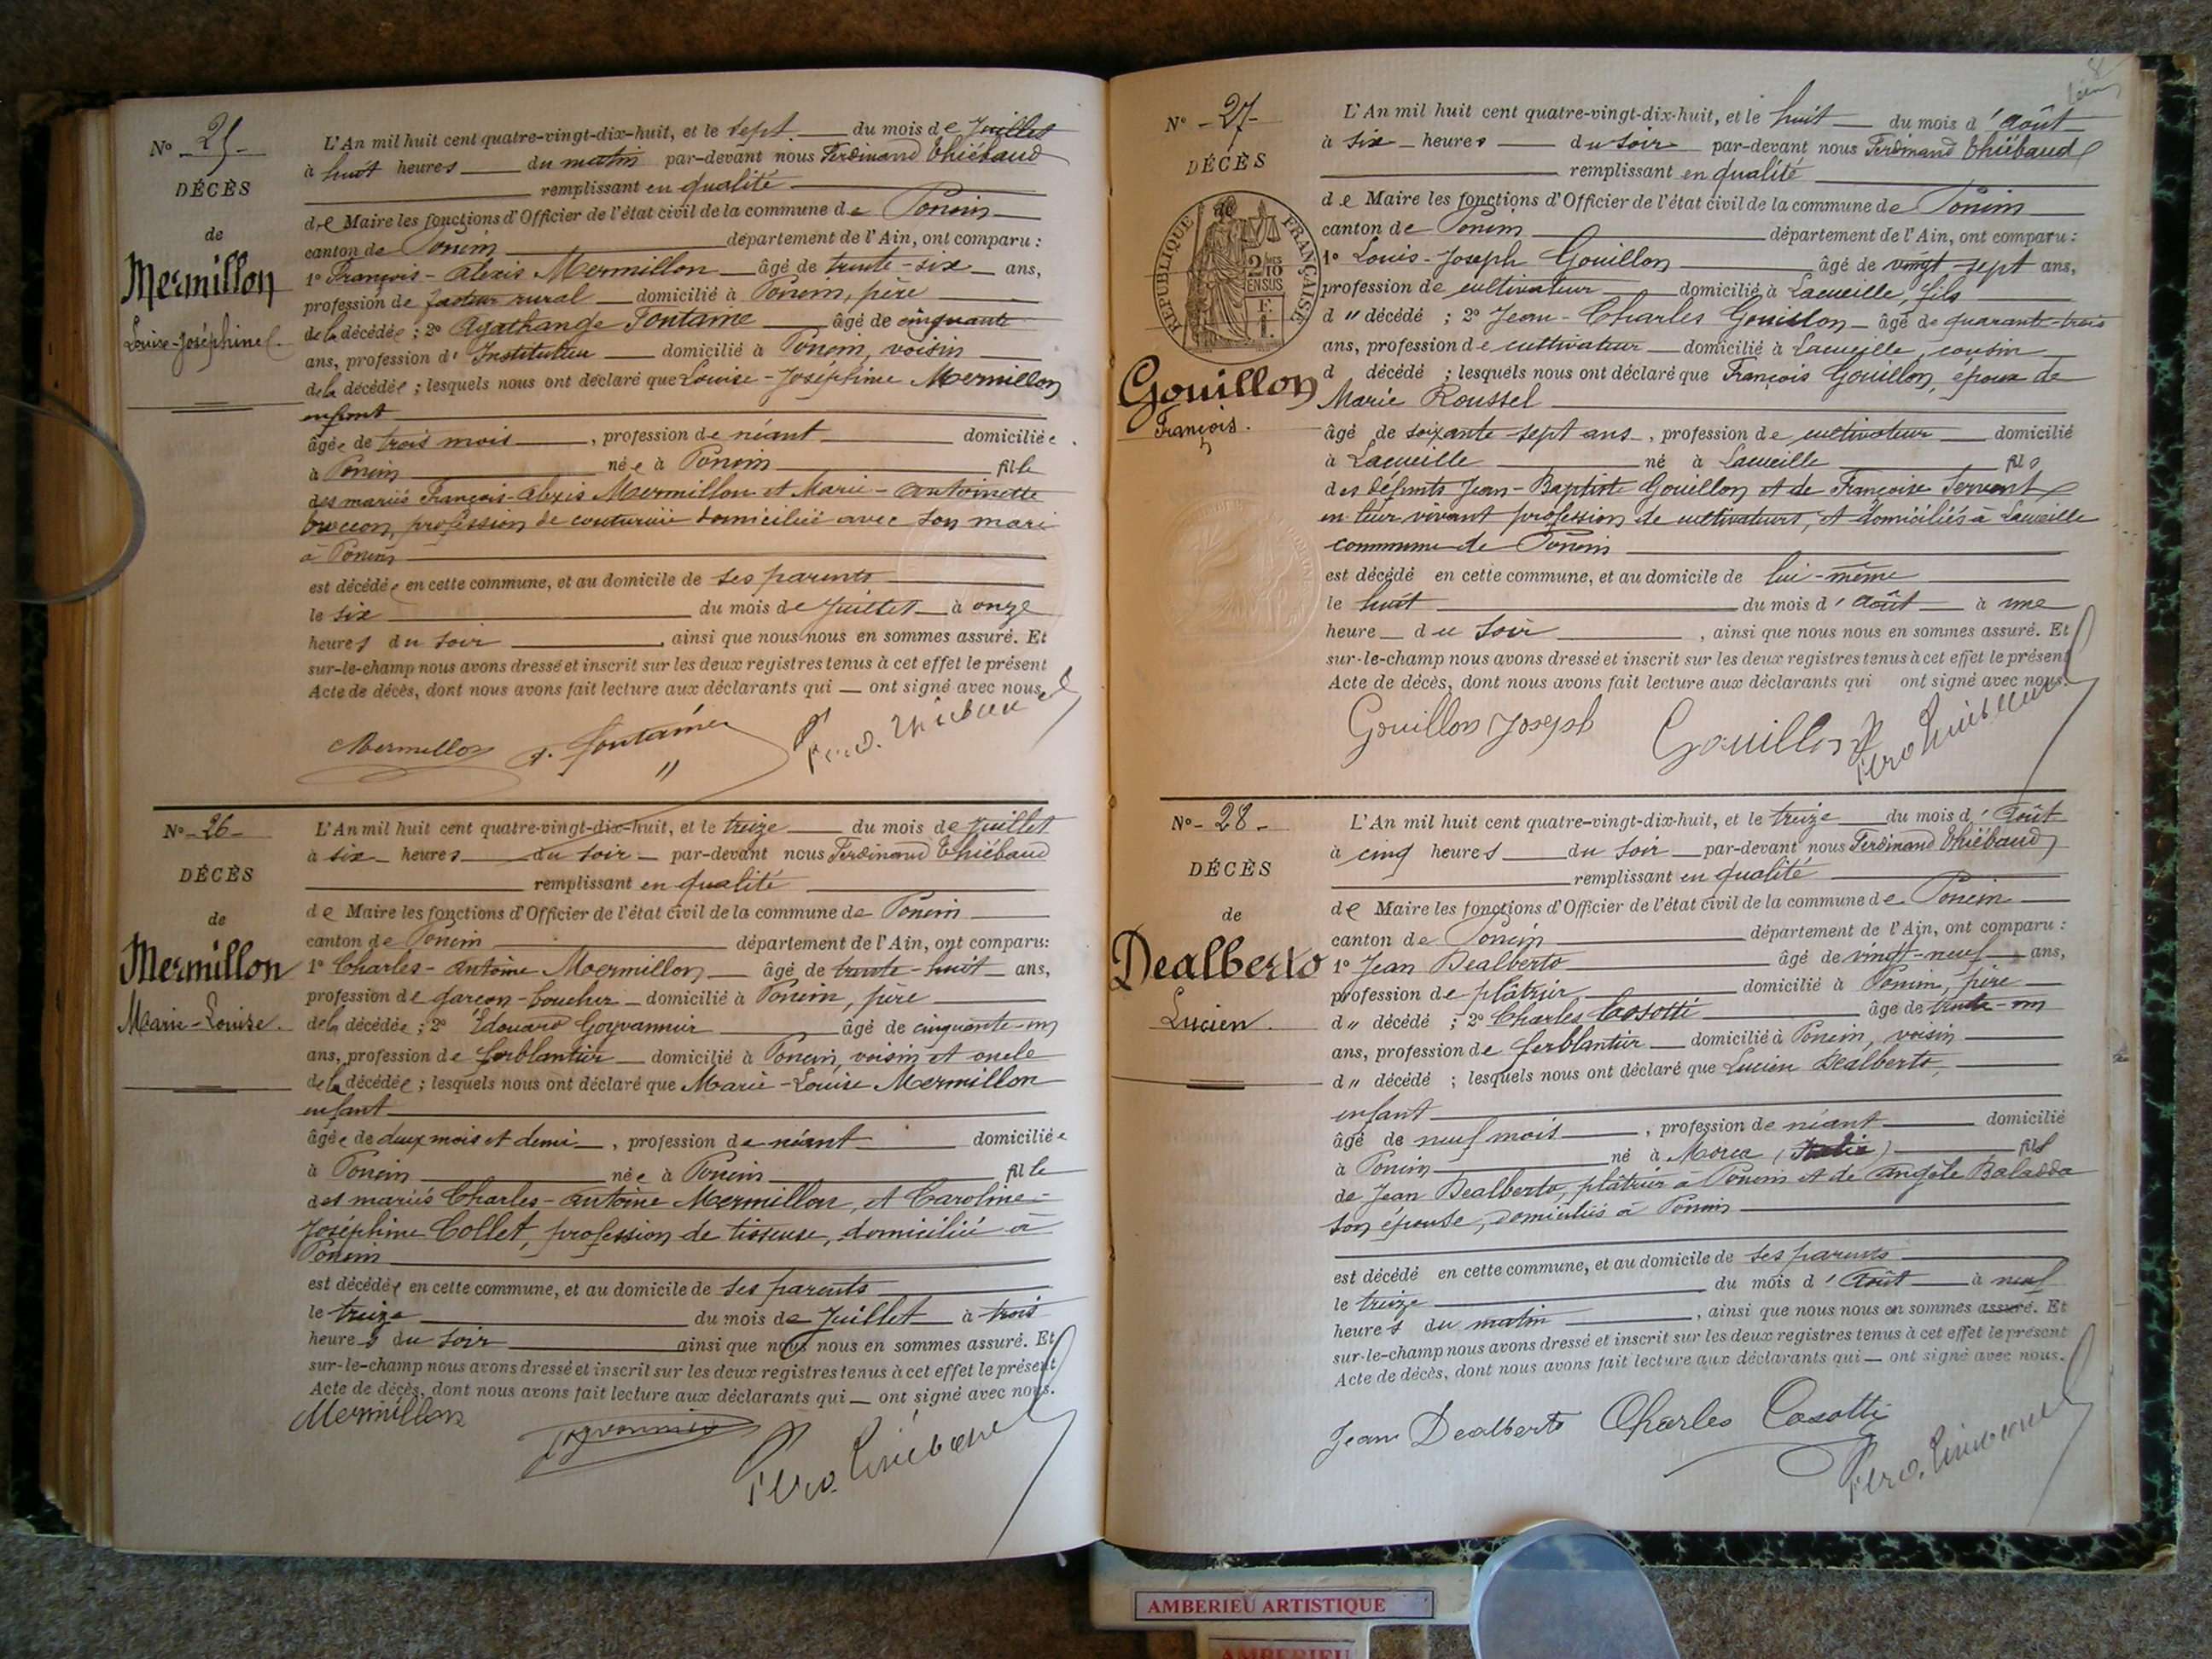 N° - 25 -
DÉCÈS
de
Mermillon
Louise-Joséphine.
L'An mil huit cent quatre-vingt-dix-huit, et le sept du mois de Juillet
à huit heures du matin par-devant nous Ferdinand Thiébaud
remplissant en qualité
de Maire les fonctions d'Officier de l'état civil de la commune de Poncin
canton de Poncin département de l'Ain, ont comparu :
1° François-Alexis Mermillon âgé de trente-six ans,
profession de facteur rural domicilié à Poncin, père
de la décédée ; 2° Agathange Fontaine âgé de cinquante
ans, profession d'Instituteur domicilié à Poncin, voisin
de la décédée ; lesquels nous ont déclaré que Louise-Joséphine Mermillon
enfant
âgée de trois mois, profession de néant domiciliée
à Poncin née à Poncin fille
des mariés François-Alexis Mermillon et Marie-Antoinette
profession de couturière domiciliée avec son mari
à Poncin
est décédée en cette commune, et au domicile de ses parents
le six du mois de Juillet à onze
heures du soir, ainsi que nous nous en sommes assuré. Et
sur-le-champ nous avons dressé et inscrit sur les deux registres tenus à cet effet le présent
Acte de décès, dont nous avons fait lecture aux déclarants qui — ont signé avec nous.
Mermillon A. Fontaine Ferd. Thiébaud
N° - 26 -
DÉCÈS
de
Mermillon
Marie-Louise.
L'An mil huit cent quatre-vingt-dix-huit, et le treize du mois de Juillet
à six heures du soir par-devant nous Ferdinand Thiébaud
remplissant en qualité
de Maire les fonctions d'Officier de l'état civil de la commune de Poncin
canton de Poncin département de l'Ain, ont comparu :
1° Charles-Antoine Mermillon âgé de trente-huit ans,
profession de garçon-boucher domicilié à Poncin, père
de la décédée ; 2° Edouard Goyvannier âgé de cinquante-un
ans, profession de ferblantier domicilié à Poncin, voisin et oncle
de la décédée ; lesquels nous ont déclaré que Marie-Louise Mermillon
enfant
âgée de deux mois et demi, profession de néant domiciliée
à Poncin née à Poncin fille
des mariés Charles-Antoine Mermillon, et Caroline-
Joséphine Collet, profession de tisseuse, domiciliée à
Poncin
est décédée en cette commune, et au domicile de ses parents
le treize du mois de Juillet à trois
heures du soir ainsi que nous nous en sommes assuré. Et
sur-le-champ nous avons dressé et inscrit sur les deux registres tenus à cet effet le présent
Acte de décès, dont nous avons fait lecture aux déclarants qui — ont signé avec nous.
Mermillon Goyvannier Ferd. Thiébaud
N° - 27 -
DÉCÈS
RÉPUBLIQUE FRANÇAISE
2/10 EN SUS
Gouillon
François.
L'An mil huit cent quatre-vingt-dix-huit, et le huit du mois d'Août
à six heures du soir par-devant nous Ferdinand Thiébaud
remplissant en qualité
de Maire les fonctions d'Officier de l'état civil de la commune de Poncin
canton de Poncin département de l'Ain, ont comparu :
1° Louis-Joseph Gouillon âgé de vingt-sept ans,
profession de cultivateur domicilié à Lacueille, fils
d " décédé ; 2° Jean-Charles Gouillon âgé de quarante-trois
ans, profession de cultivateur domicilié à Lacueille, cousin
d décédé ; lesquels nous ont déclaré que François Gouillon, époux de
Marie Roussel
âgé de soixante-sept ans, profession de cultivateur domicilié
à Lacueille né à Lacueille fils
des défunts Jean-Baptiste Gouillon et de Françoise Servant
en leur vivant profession de cultivateurs, et domiciliés à Lacueille
commune de Poncin
est décédé en cette commune, et au domicile de lui-même
le huit du mois d'Août à une
heure du soir, ainsi que nous nous en sommes assuré. Et
sur-le-champ nous avons dressé et inscrit sur les deux registres tenus à cet effet le présent
Acte de décès, dont nous avons fait lecture aux déclarants qui ont signé avec nous.
Gouillon Joseph Gouillon Ferd Thiébaud
N° - 28 -
DÉCÈS
de
Dealberto
Lucien.
L'An mil huit cent quatre-vingt-dix-huit, et le treize du mois d'Août
à cinq heures du soir par-devant nous Ferdinand Thiébaud
remplissant en qualité
de Maire les fonctions d'Officier de l'état civil de la commune de Poncin
canton de Poncin département de l'Ain, ont comparu :
1° Jean Dealberto âgé de vingt-neuf ans,
profession de plâtrier domicilié à Poncin, père
d " décédé ; 2° Charles Casotti âgé de trente-un
ans, profession de ferblantier domicilié à Poncin, voisin
d " décédé ; lesquels nous ont déclaré que Lucien Dealberto,
enfant
âgé de neuf mois, profession de néant domicilié
à Poncin né à Morca (Italie) fils
de Jean Dealberto, plâtrier à Poncin et de Angèle Baladda
son épouse, domiciliés à Poncin
est décédé en cette commune, et au domicile de ses parents
le treize du mois d'Août à neuf
heures du matin, ainsi que nous nous en sommes assuré. Et
sur-le-champ nous avons dressé et inscrit sur les deux registres tenus à cet effet le présent
Acte de décès, dont nous avons fait lecture aux déclarants qui — ont signé avec nous.
Jean Dealberto Charles Casotti Ferd. Thiébaud
AMBERIEU ARTISTIQUE
AMBERIEU